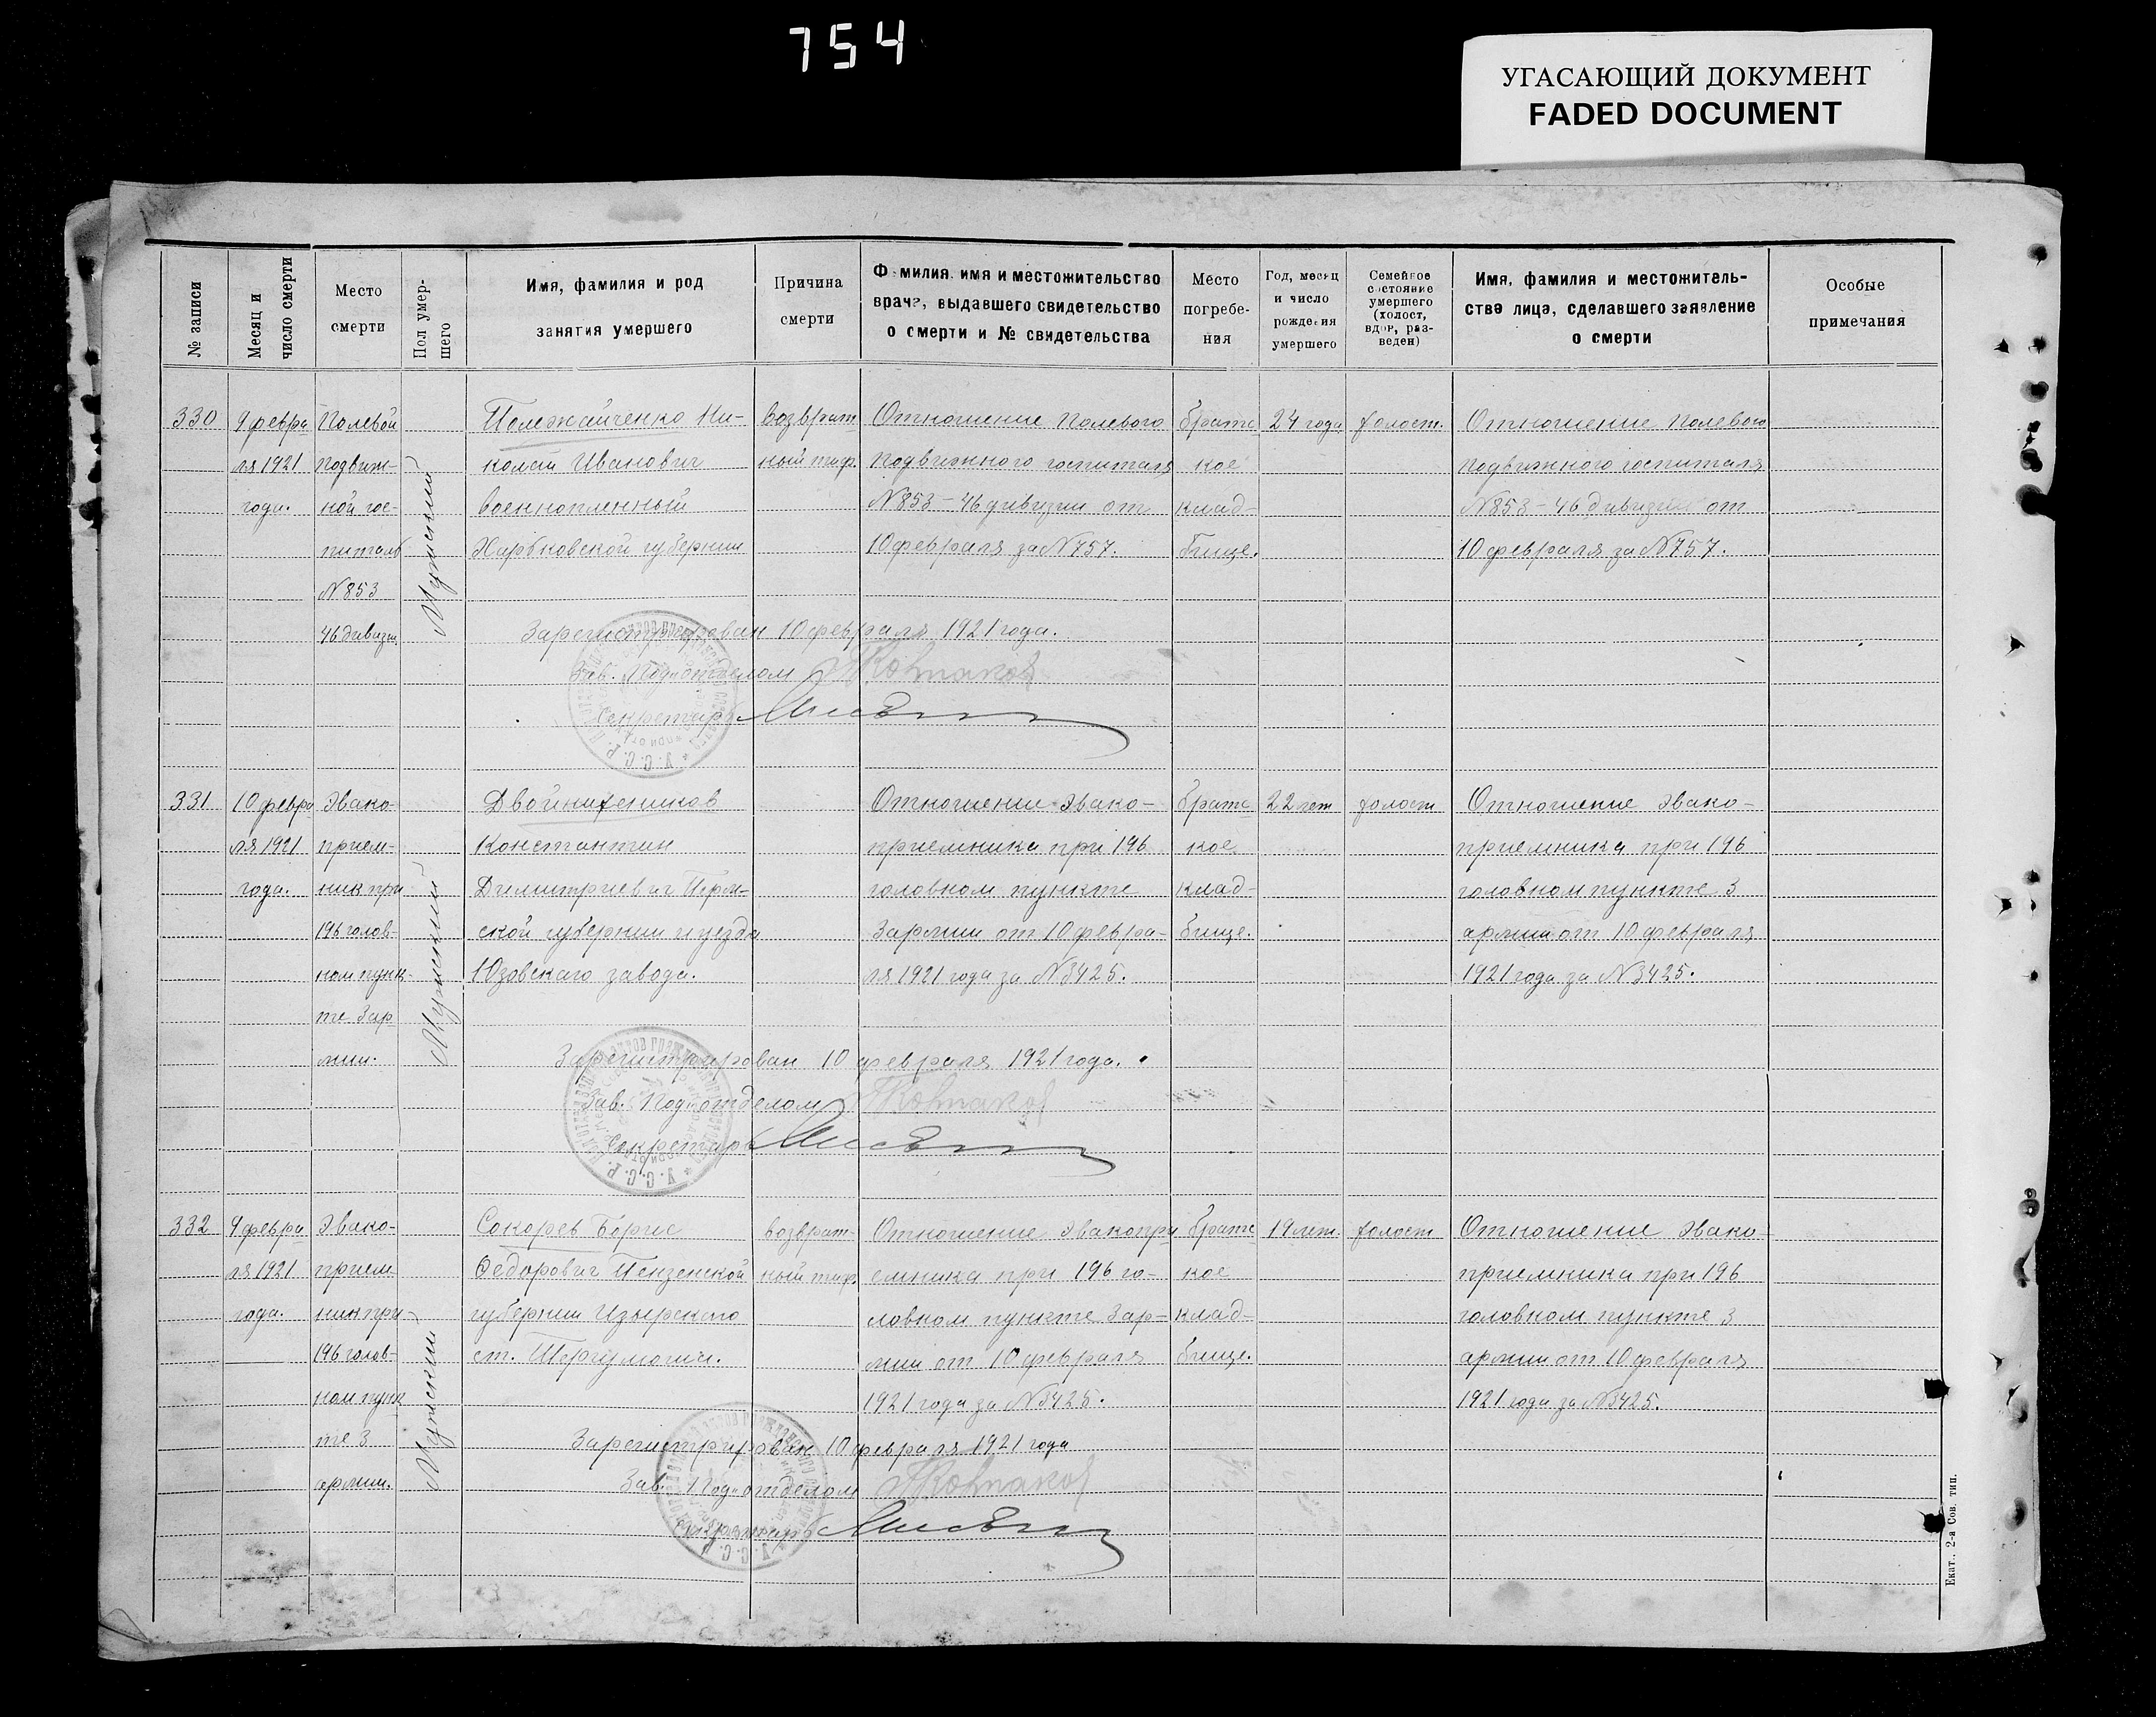 754
УГАСАЮЩИЙ ДОКУМЕНТ
FADED DOCUMENT
№ записи
Месяц и
число смерти
Место
смерти
Пол умер-
шего
Имя, фамилия и род
занятия умершего
Причина
смерти
Фамилия, имя и местожительство
врача, выдавшего свидетельство
о смерти и № свидетельства
Место
погребе-
ния
Год, месяц
и число
рождения
умершего
Семейное
состояние
умершего
(холост,
вдов, раз-
веден)
Имя, фамилия и местожитель-
ства лица, сделавшего заявление
о смерти
Особые
примечания
330
9 февра
ля 1921
года.
Полевой
подвиж-
ной гос-
питаль
№ 853
46 дивизии
Мужской
Полежайченко Ни-
колай Иванович
военнопленный
Харьковской губернии
возврат
ный тиф.
Отношение Полевого
подвижного госпиталя
№ 853 – 46 дивизии от
10 февраля за № 757.
братс
кое
клад-
бище.
24 года
холост.
Отношение Полевого
подвижного госпиталя
№ 853 – 46 дивизии от
10 февраля за № 757.
Зарегистрирован 10 февраля 1921 года.
Зав. Подотделом
Секретарь
331
10 февра
ля 1921
года.
Эвако-
прием-
ник при
196 голов-
ном пунк-
те 3 ар
мии.
Мужской
Константин
Димитриевич Перм-
ской губернии и уезда
Юзовского завода.
Отношение Эвако-
приемника при 196
головном пункте
3 армии от 10 февра-
ля 1921 года за № 3425.
братс
кое
клад-
бище.
22 лет
холост
Отношение Эвако-
приемника при 196
головном пункте 3
армии от 10 февраля
1921 года за № 3425.
Зарегистрирован 10 февраля 1921 года.
Зав. Подотделом
Секретарь
332
9 февра
ля 1921
года.
Эвако-
прием-
ник при
196 голов-
ном пунк
те 3
армии.
Мужской
Сокорев Борис
Федорович Пензенской
губернии
ст.
возврат-
ный тиф.
Отношение Эвакопри
емника при 196 го-
ловном пункте 3 ар-
мии от 10 февраля
1921 года за № 3425.
братс
кое
клад-
бище.
19 лет.
холост
Отношение Эвако-
приемника при 196
головном пункте 3
армии от 10 февраля
1921 года за № 3425.
Зарегистрирован 10 февраля 1921 года
Зав. Подотделом
Секретарь
Екат., 2-а Сов. тип.